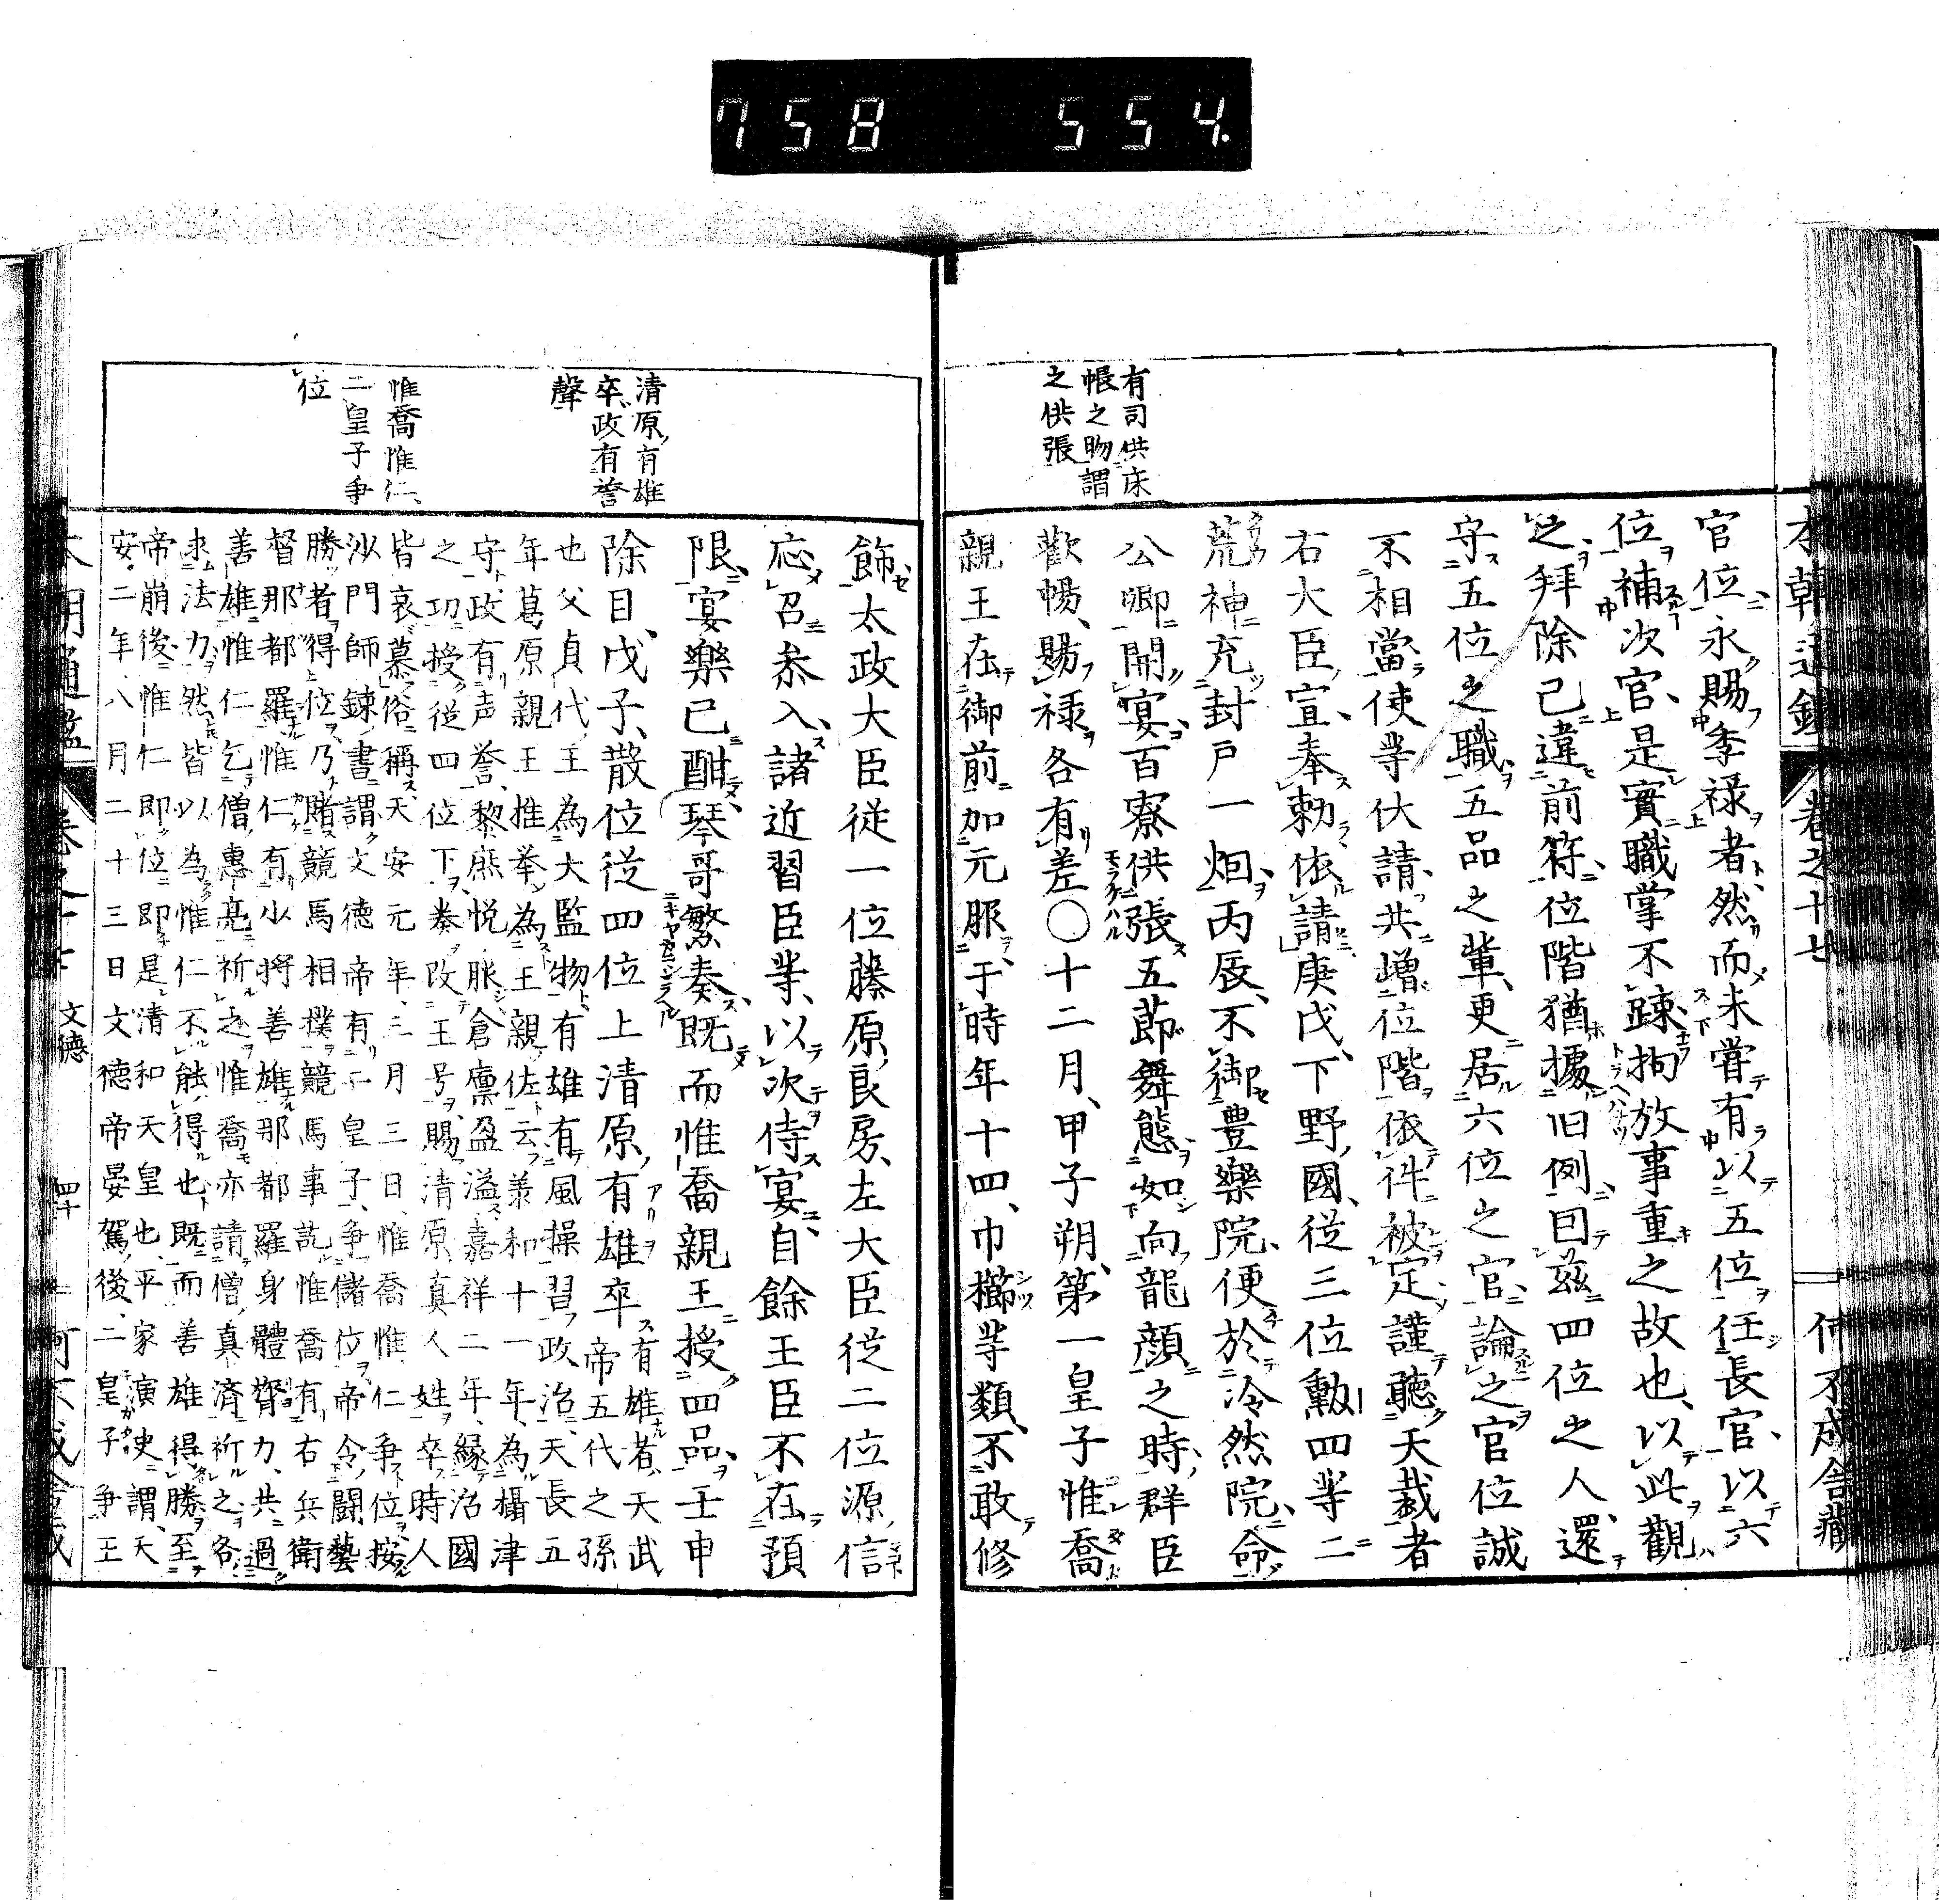 758 554.
本朝通鑑 巻之十七 何不成舎蔵
有司供床
帳之物謂
之供張
官位永賜季禄者然而未嘗有以五位任長官以六
位補次官是實職掌不疎拘放事重之故也以此觀
之拜除已違前符位階猶據旧例因茲四位之人還
守五位之職五品之輩更居六位之官論之官位誠
不相當使等伏請共増位階依件被定謹聴天裁者
右大臣宣奉勅依請庚戌下野國從三位勲四等二
荒神充封戸一烟丙辰不御豊樂院便於冷然院命
公卿開宴百寮供張五莭舞態如向龍顔之時群臣
歡暢賜禄各有差〇十二月甲子朔第一皇子惟喬
親王在御前加元服于時年十四巾櫛等類不敢修
清原有雄
卒政有誉
聲
惟喬惟仁
二皇子争
位
飾太政大臣従一位藤原良房左大臣従二位源信
応召参入諸近習臣等以次侍宴自餘王臣不在預
限宴樂已酣琴哥繁奏既而惟喬親王授四品壬申
除目戊子散位従四位上清原有雄卒有雄者天武
帝五代之孫
也父貞代王為大監物有雄有風操習政治天長五
年葛原親王推挙為王親佐云義和十一年為攝津
守政有声誉黎庶悦服倉廩盈溢嘉祥二年縁治國
之功授従四位下奏改王号賜清原真人姓卒時人
皆哀慕俗稱天安元年三月三日惟喬惟仁争位按
沙門師錬書謂文徳帝有二皇子争儲位帝令闘藝
勝者得位乃賭競馬相撲競馬事訖惟喬有右兵衛
督那都羅惟仁有少将善雄那都羅身體膂力共過
善雄惟仁乞僧惠亮祈之惟喬亦請僧真済祈之各
求法力然皆以為惟仁不能得也既而善雄得勝至
帝崩後惟仁即位即是清和天皇也平家演史謂天
安二年八月二十三日文徳帝晏駕後二皇子争王
本朝通鑑 巻之十七 文徳 四十 何不成舎蔵